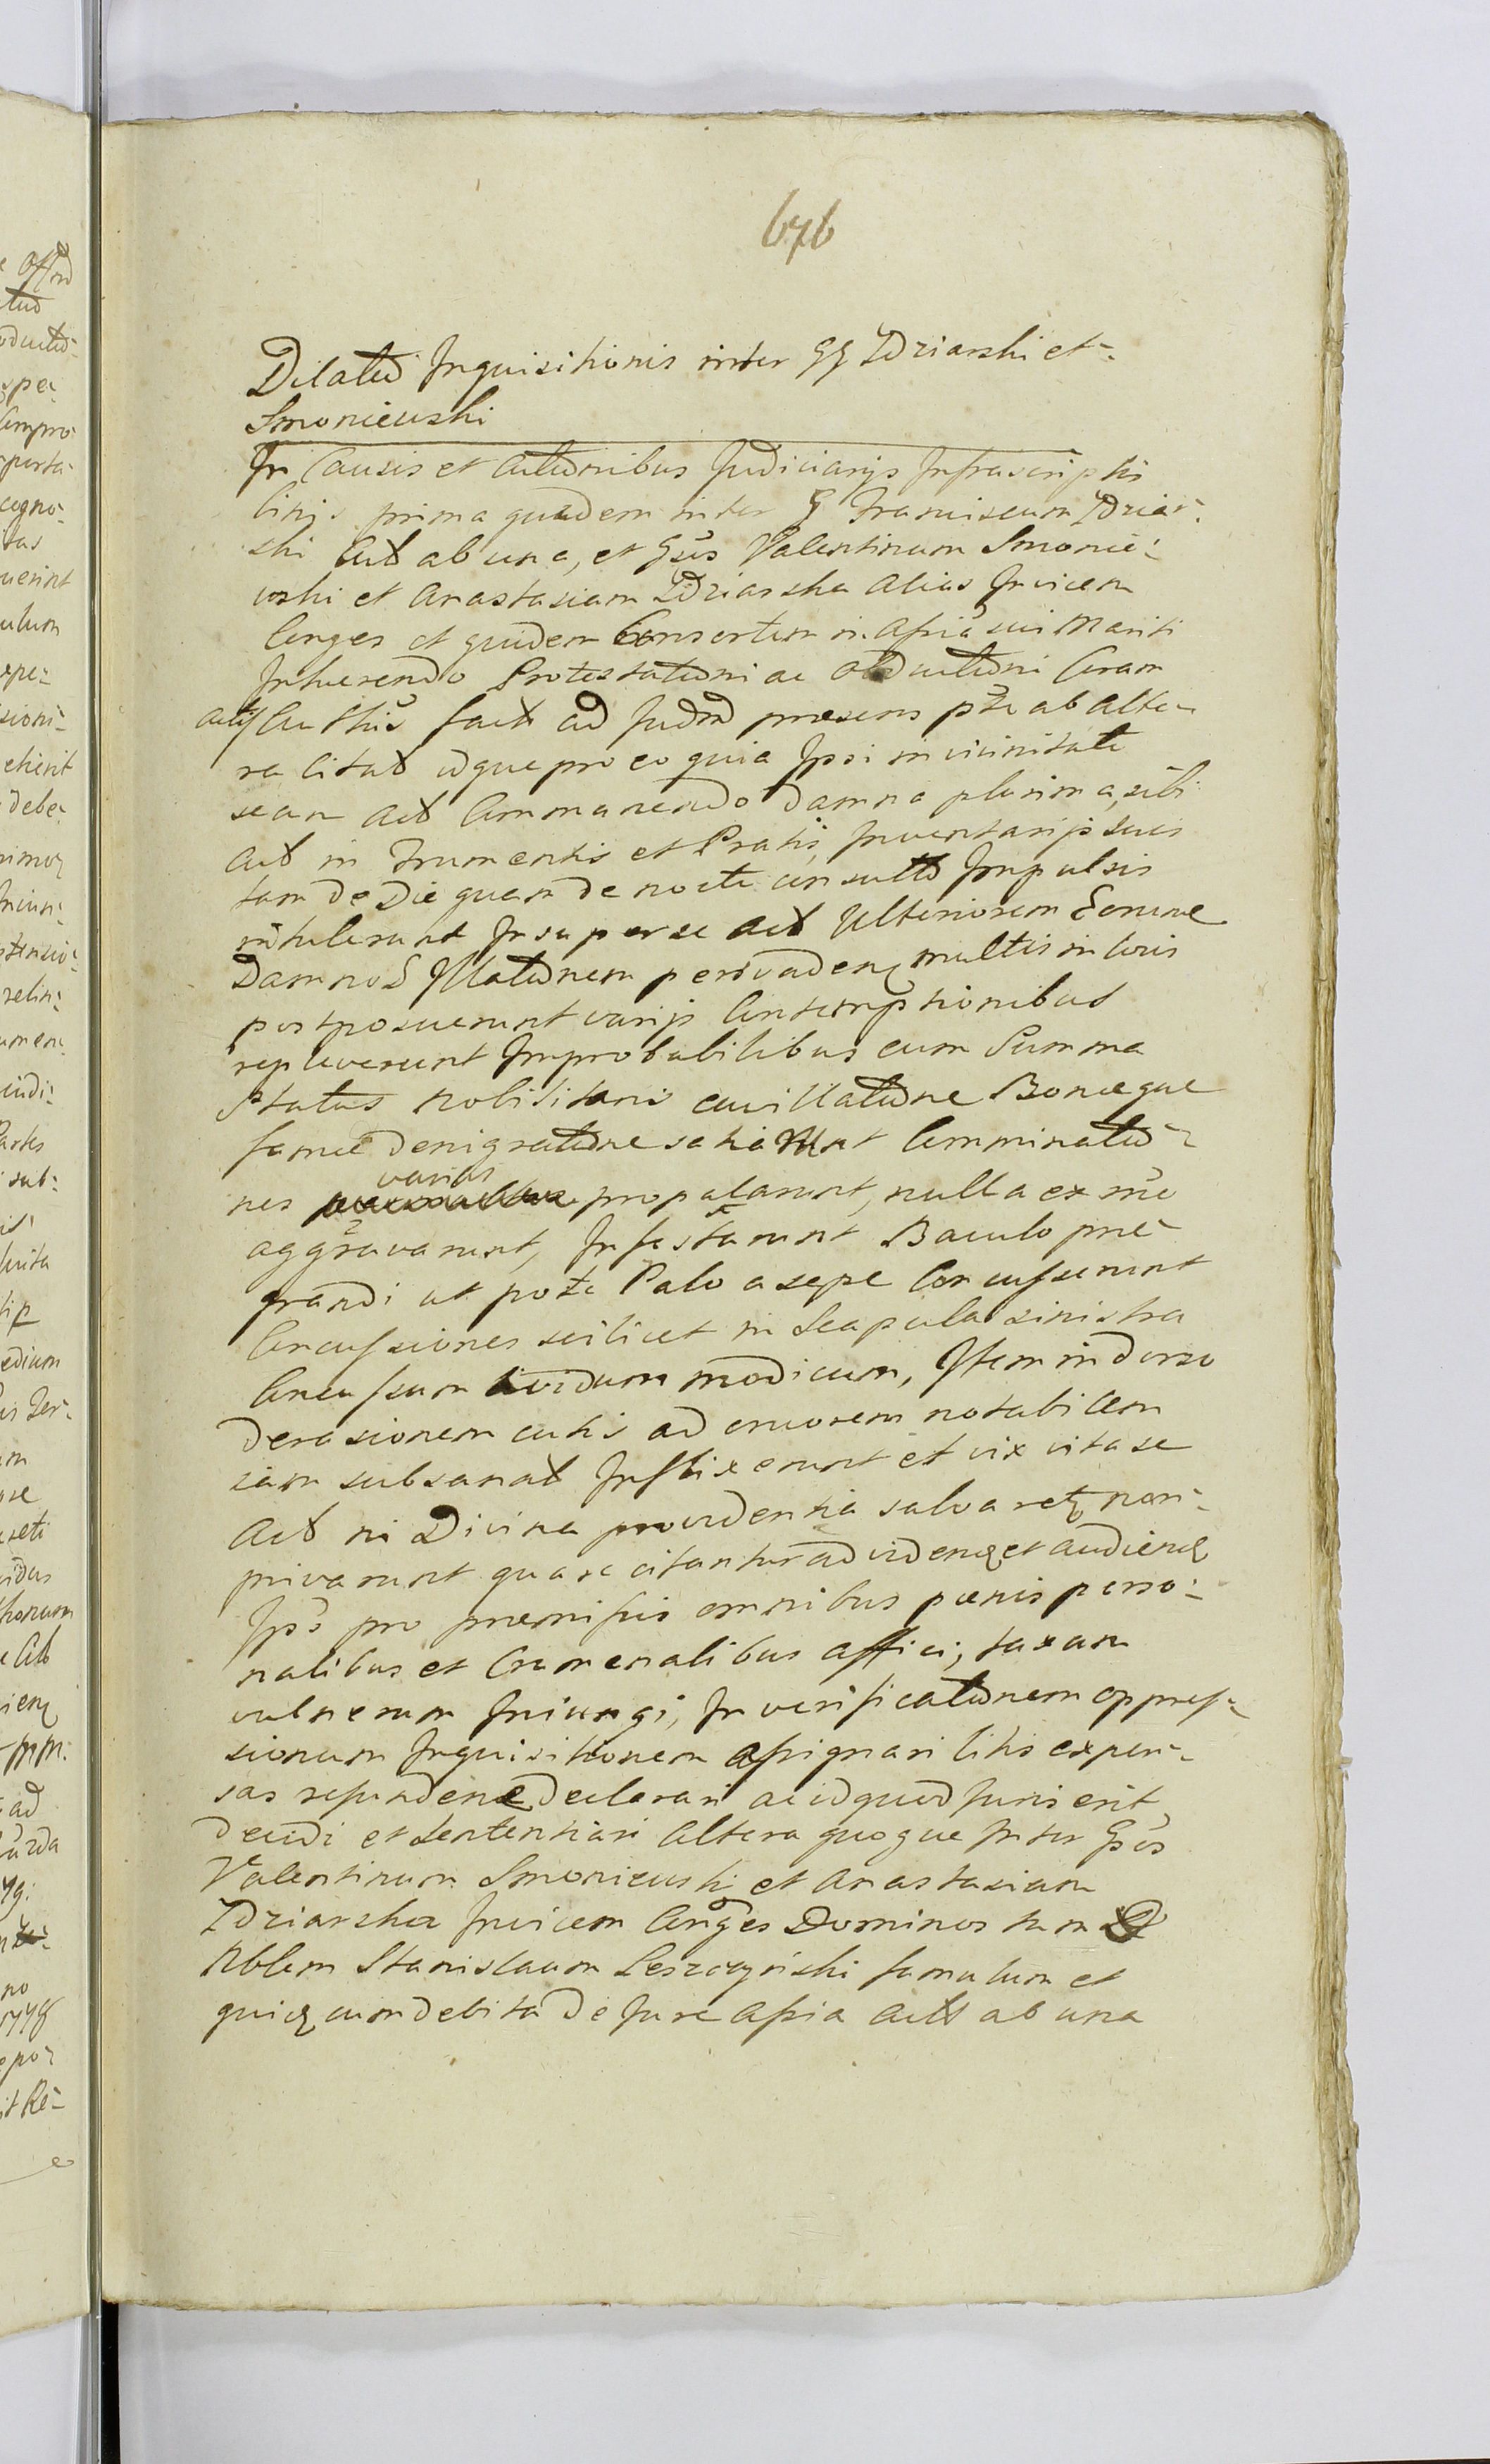 676
Dilatio Inquisitionis inter GG Idziarski et
Smoniewski
In Causis et Actionibus Judiciarijs Infrascriptis
Citis prima quidem inter G Franciscum Idziar-
ski Act ab una, et Gsos Valentinum Smonie-
wski et Anastasiam Idziarska alias Invicem
Conges et quidem Consortem in Assia sui Mariti
Inhaerendo Protestationi ac obductioni Coram
Actis fact ad Judm praesens pte ab alte-
ra Citat idque pro eo quia Ipsi in vicinitate
secum Act Commanendo damna plurima, sibi
Act in Frumentis et Pratis, Inventarijs suis
tam de Die quam de nocte consulto Impulsis
intulerunt Insuper se Act Ulteriorem Eorune
Damnos Illationem persvadenq multis in locis
postposuerunt varijs Contemptionibus
repleverunt Improbabilibus cum Summa
Status Nobilitaris cavillatione Bonaeque
famae denigratione satiarunt Comminatio-
nes varias propalarunt, nulla ex
aggravarunt, Infestarunt Baculo prae-
grandi ut pote Palo a sepe Concusserunt
Concussiones scilicet in Scapula sinistra
Concussum lividum modicum, Item in dorso
derasionem cutis ad cruorem notabilem
iam subsanat Inflixerunt et vix vita se
Act ni Divina providentia salvaretq non
privarunt quare citantur ad videnq et audienq
Ipsos pro praemissis omnibus paenis perso-
nalibus et Criminalibus affici, taxam
vulnerum Iniungi, In verificationem oppres-
sionum Inquisitionem assignari litis expen-
sas refundenq declarari ac id quod Juris erit
decidi et sententiari Altera quoque Inter Gsos
Valentinum Smoniewski et Anastasiam
Idziarska Invicem Conges Dominos tum
Nblem Stanislaum Leszczynski famulum et
quiq cum debita de Jure Assia Act ab una